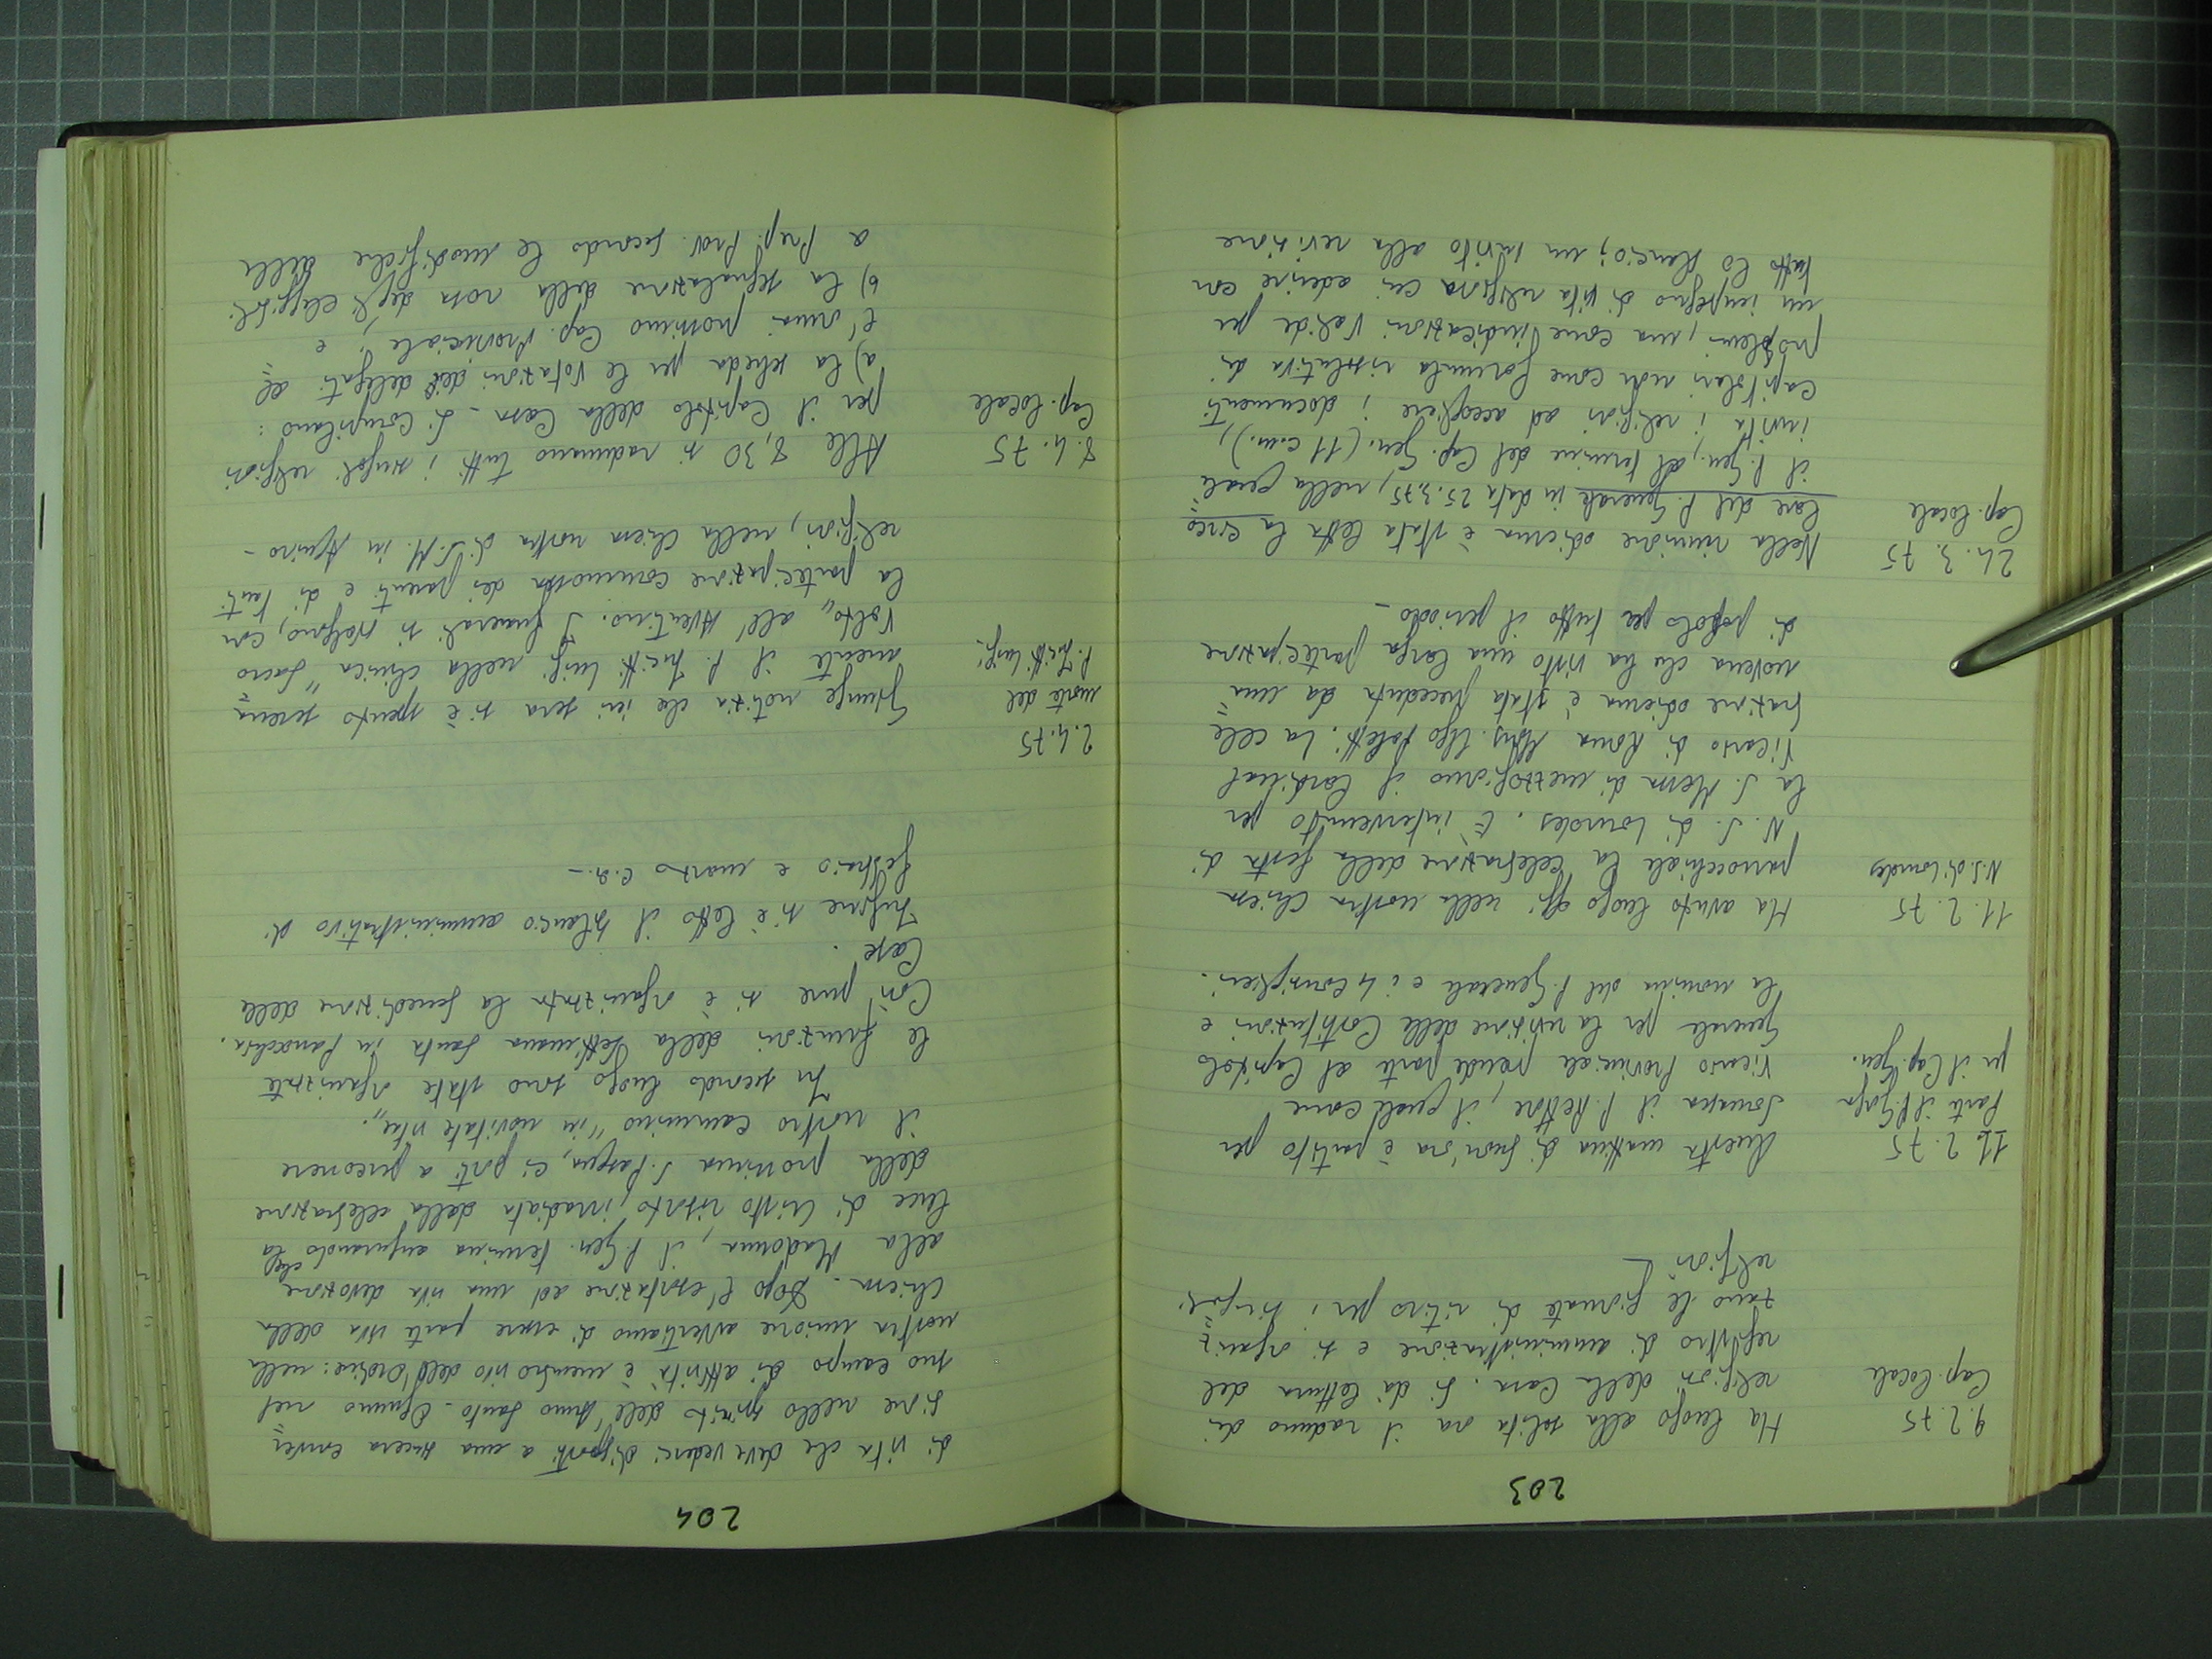 203
9.2.75
Cap. locale
Ha luogo alla solita ora il raduno dei
religiosi della Casa. Si dà lettura del
registro di amministrazione e si organiz=
zano le giornate di ritiro per i singoli
religiosi -
11.2.75
Parte il P.
per il Cap. Gen.
Questa mattina di buon'ora è partito per
Somasca il P. Rettore, il quale come
Vicario Provinciale prende parte al Capitolo
Generale per la revisione delle Costituzioni e
la nomina del P. Generale e i 4 Consiglieri.
11.2.75
N.S. di Lourdes
Ha avuto luogo oggi nella nostra chiesa
parrocchiale la celebrazione della festa di
N.S. di Lourdes. È intervenuto per
la S. Messa di mezzogiorno il Cardinal
Vicario di Roma Mons. Ugo Poletti. La cele
brazione odierna è stata preceduta da una
novena che ha visto una larga partecipazione
di popolo per tutto il periodo -
24.3.75
Cap. locale
Nella riunione odierna è stata letta la circo=
lare del P. Generale in data 25.3.75, nella quale
il P. Gen., al termine del Cap. Gen. (11 c.m.),
invita i religiosi ad accogliere i documenti
capitolari non come formula risolutiva di
problemi, ma come indicazioni valide per
un impegno di vita religiosa cui aderire con
tutto lo slancio; un invito alla revisione
204
di vita che deve vederci disposti a una sincera conver=
sione nello spirito dell'Anno Santo. Ognuno nel
suo campo di attività è membro vivo dell'Ordine: nella
nostra unione avvertiamo di essere parte viva della
Chiesa. Dopo l'esortazione ad una viva devozione
alla Madonna, il P. Gen. termina augurando che la
luce di Cristo risorto, irradiata dalla celebrazione
della prossima S. Pasqua, ci porti a percorrere
il nostro cammino "in novitate vitae".
In secondo luogo sono state organizzate
le funzioni della Settimana Santa in Parrocchia.
Così pure si è organizzata la benedizione delle
Case.
Infine si è letto il bilancio amministrativo di
febbraio e marzo c.a. -
2.4.75
morte del
P. Luigi
Giunge notizia che ieri sera si è spento serena=
mente il P. Luigi nella clinica "Sacro
Volto" all'Aventino. I funerali si svolgono, con
la partecipazione commossa dei parenti e di tanti
religiosi, nella chiesa nostra di S.M. in Aquiro -
8.4.75
Cap. locale
Alle 8,30 si radunano tutti i singoli religiosi
per il Capitolo della Casa - Si compilano:
a) la scheda per le votazioni dei delegati al=
l'ormai prossimo Cap. Provinciale, e
b) la segnalazione della rosa degli eleggibili
a Prep. Prov. secondo le modifiche delle